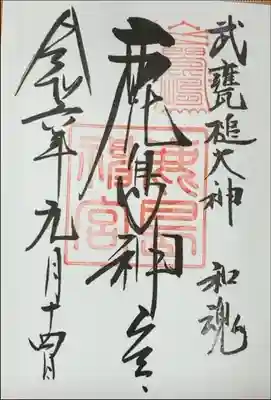 武甕槌大神 和魂
鹿島神宮
令和六年元月十四日
鹿島神宮